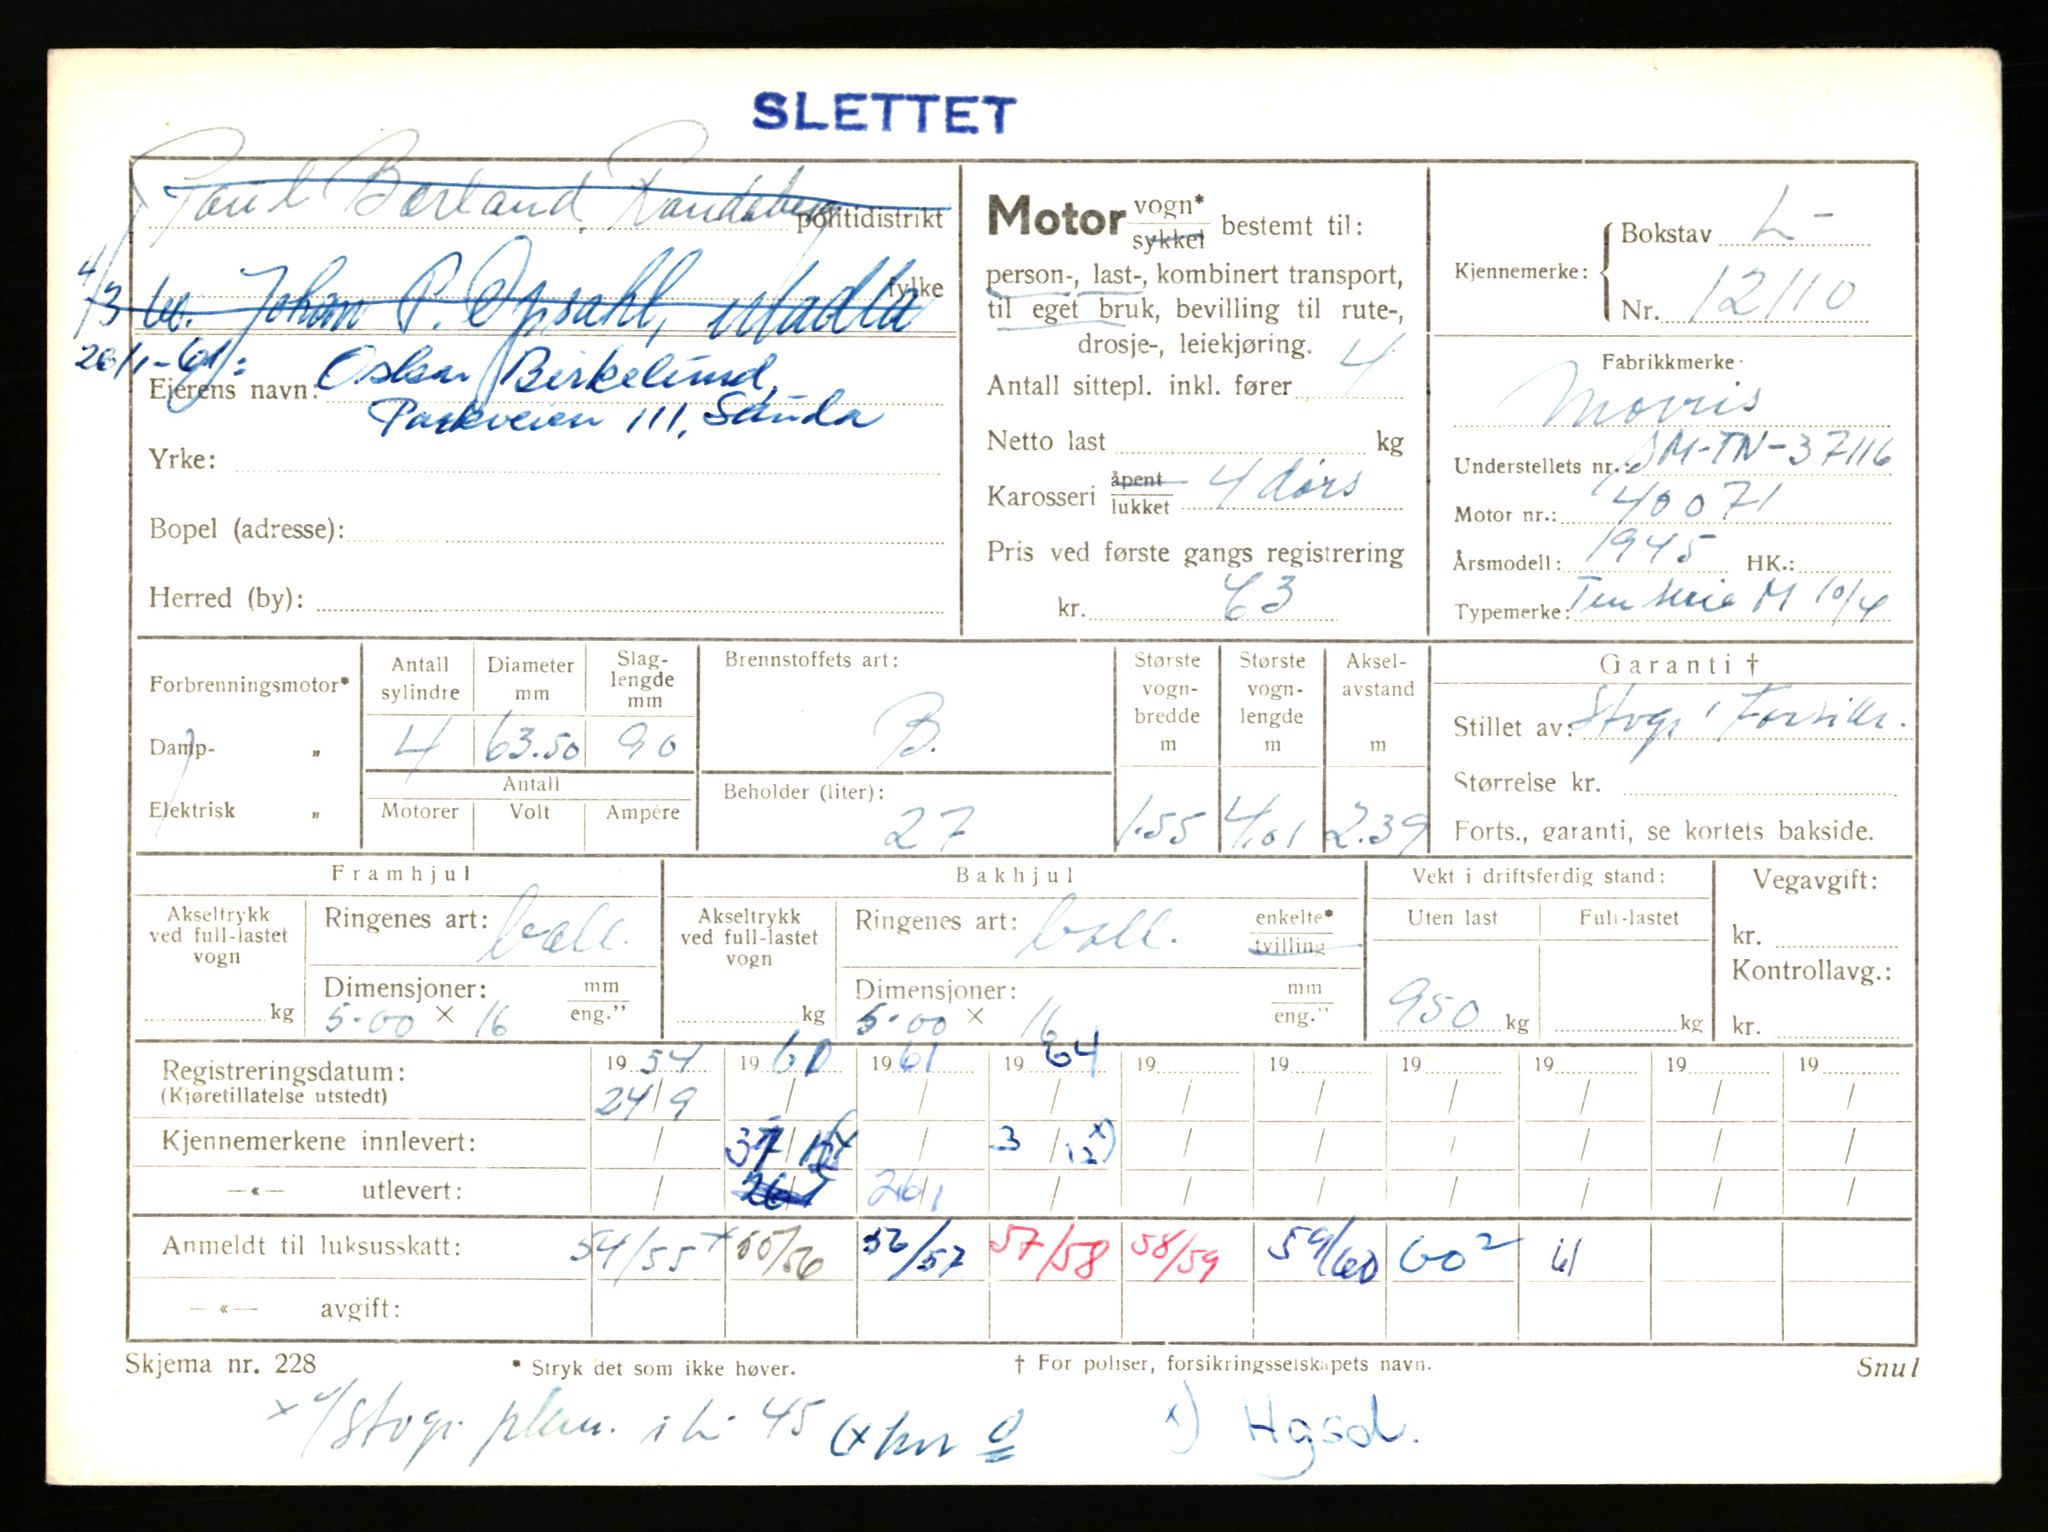 SLETTET
Paul Børland, Randaberg politidistrikt
4/3 60. Johan P. Opsahl, Madla fylke
26/1-61:
Eierens navn: Oskar Birkelund,
Parkveien 111, Sauda
Yrke:
Bopel (adresse):
Herred (by):
Motor vogn* sykkel bestemt til:
person-, last-, kombinert transport,
til eget bruk, bevilling til rute-,
drosje-, leiekjøring.
Antall sittepl. inkl. fører 4
Netto last kg
Karosseri åpent lukket 4 dørs
Pris ved første gangs registrering
kr. 63
Kjennemerke: Bokstav L-
Nr. 12110
Fabrikkmerke:
Morris
Understellets nr.: SM-TN-37116
Motor nr.: 40071
Årsmodell: 1945 HK.:
Typemerke: Ten serie M 10/4
Forbrenningsmotor*
Damp- "
Elektrisk "
Antall sylindre
4
Diameter mm
63.50
Slag-lengde mm
90
Antall
Motorer Volt Ampére
Brennstoffets art:
B.
Beholder (liter):
27
Største vogn-bredde m
1.55
Største vogn-lengde m
4.01
Aksel-avstand m
2.39
Garanti †
Stillet av: Stvgr Forsikr.
Størrelse kr.
Forts., garanti, se kortets bakside.
Framhjul
Akseltrykk ved full-lastet vogn
kg
Ringenes art: ball.
Dimensjoner: mm eng."
5.00 × 16
Bakhjul
Akseltrykk ved full-lastet vogn
kg
Ringenes art: ball. enkelte* tvilling
Dimensjoner: mm eng."
5.00 × 16
Vekt i driftsferdig stand:
Uten last Full-lastet
950 kg kg
Vegavgift:
kr.
Kontrollavg.:
kr.
Registreringsdatum: 1954 1960 1961 1964 19 19 19 19 19 19
(Kjøretillatelse utstedt) 24/9 / / / / / / / / /
Kjennemerkene innlevert: / / / 3/12 x) / / / / / /
—«— utlevert: / 26/1 26/1 / / / / / / /
Anmeldt til luksusskatt: 54/55 x 55/56 56/57 57/58 58/59 59/60 60² 61
—«— avgift:
Skjema nr. 228 * Stryk det som ikke høver. † For poliser, forsikringsselskapets navn. Snul
x) Hgsd.